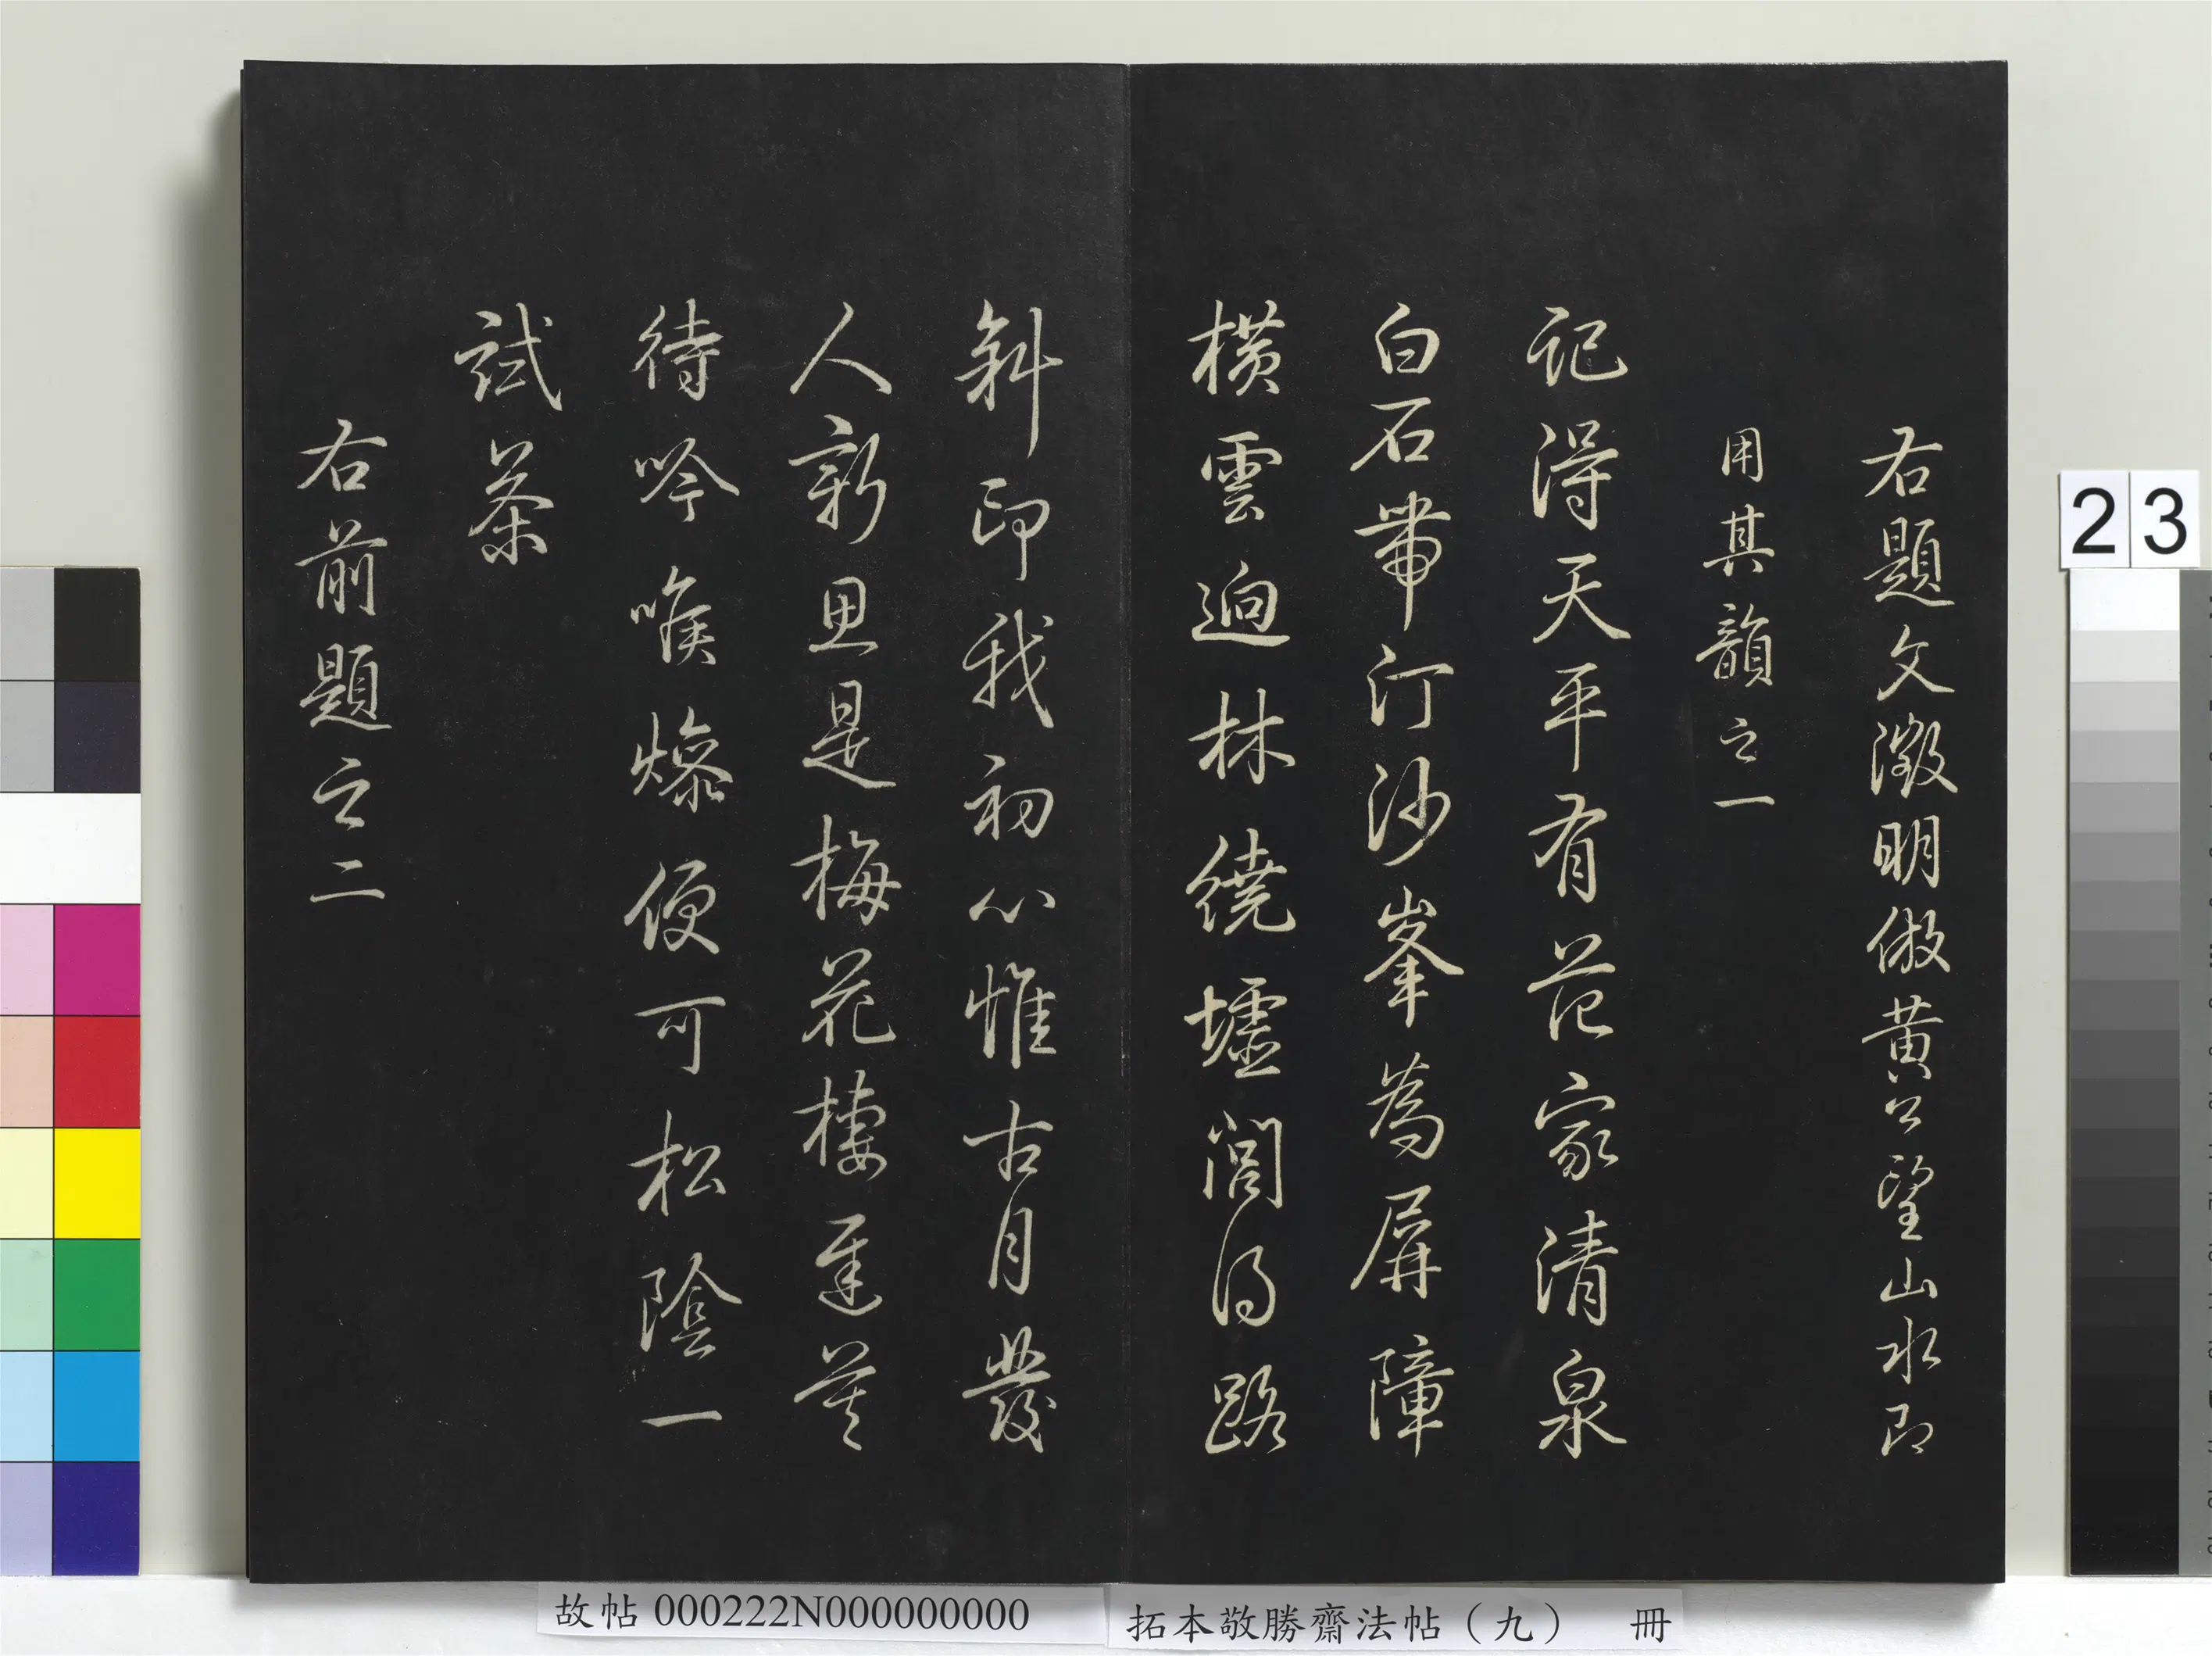 右題文徵明倣黃公望山水即
用其韻之一
記得天平有范家清泉
白石帶汀沙峯為屏障
橫雲迥林繞墟閭得路
斜印我初心惟古月發
人新思是梅花棲遲莫
待吟喉燥便可松陰一
試茶
右前題之二
23
故帖 000222N000000000
拓本敬勝齋法帖（九） 冊